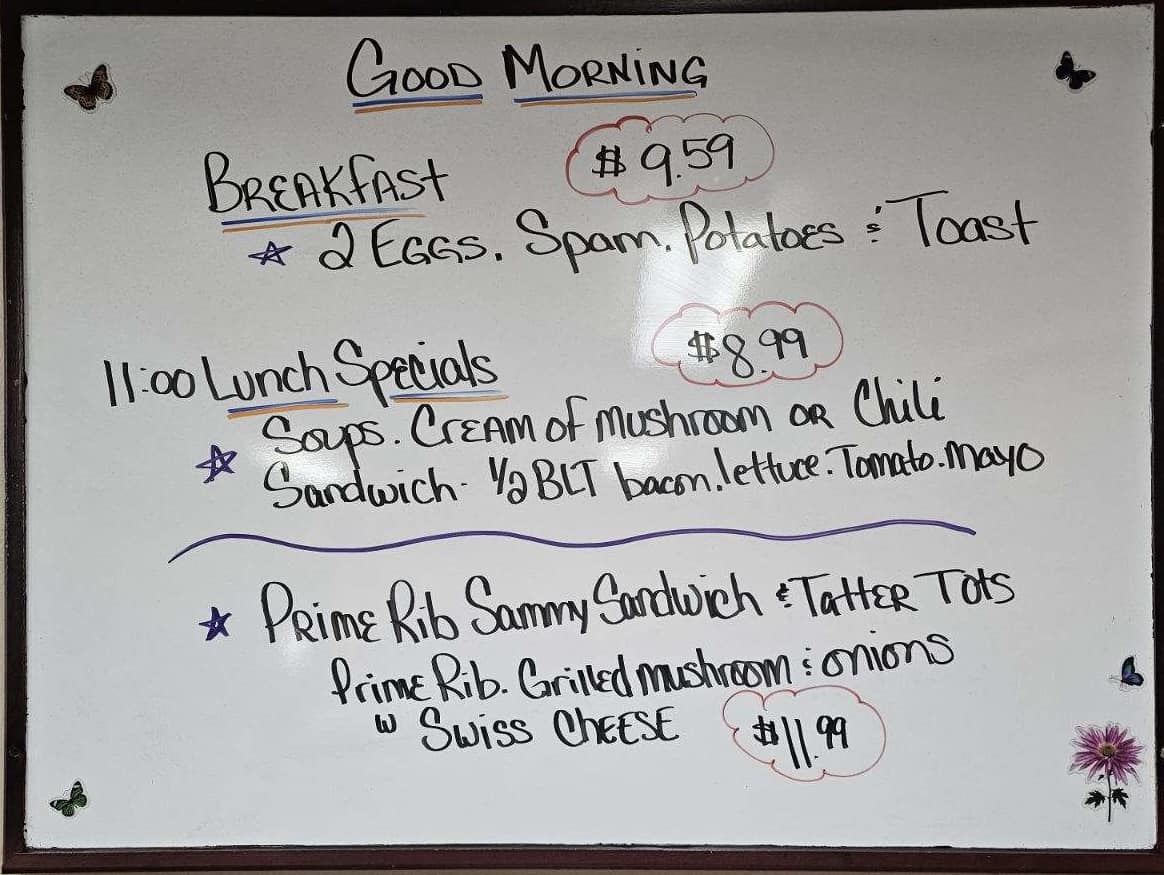 GOOD MORNING
BREAKfASt $9.59
☆ 2 EGGS. Spam. Potatoes & Toast
11:00 Lunch Specials $8.99
☆ Soups. CREAM of Mushroom OR Chili
Sandwich - 1/2 BLT bacon. lettuce. Tomato. Mayo
☆ Prime Rib Sammy Sandwich & TattER Tots
Prime Rib. Grilled mushroom & onions
w Swiss CHEESE $11.99